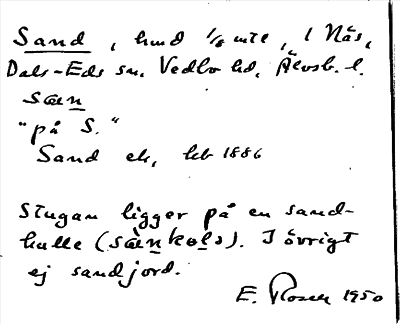 Sand, hmd 1/8 mtl, i Nås,
Dals-Eds sn. Vedbo hd, Älvsb. l.
säen
"på S."
Sand ek, kb 1886
Stugan ligger på en sand-
kulle (säenkols). I övrigt
ej sandjord.
E. Rosell 1950